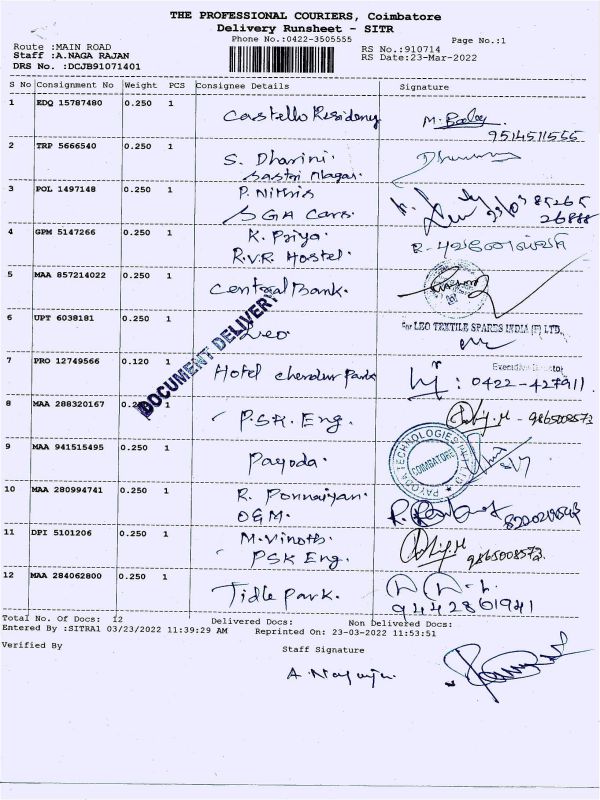 THE PROFESSIONAL COURIERS, Coimbatore
Delivery Runsheet - SITR
Phone No.:0422-3505555
Page No.:1
Route :MAIN ROAD
RS No.:910714
Staff :A.NAGA RAJAN
RS Date:23-Mar-2022
DRS No. :DCJB91071401
S No Consignment No Weight PCS Consignee Details Signature
1 EDQ 15787480 0.250 1
Castello Residency
9514511555
2 TRP 5666540 0.250 1
S. Dharini.
Sastri Nagar.
3 POL 1497148 0.250 1
P. Nithis
SGA Cars.
4 GPM 5147266 0.250 1
K. Priya.
R.V.R Hostel.
5 MAA 857214022 0.250 1
Central Bank.
6 UPT 6038181 0.250 1
Leo.
For LEO TEXTILE SPARES INDIA (P) LTD.,
DOCUMENT DELIVERY
7 PRO 12749566 0.120 1
Hotel chendur Park
: 0422-427911.
8 MAA 288320167 1
P.S.K. Eng.
- 9865008573
9 MAA 941515495 0.250 1
Payoda.
PAYODA TECHNOLOGIES
COIMBATORE
10 MAA 280994741 0.250 1
R. Ponnaiyan.
O&M.
11 DPI 5101206 0.250 1
M. Vinoth.
PSK Eng.
9865008573.
12 MAA 284062800 0.250 1
Tidle park.
9442861941
Total No. Of Docs: 12 Delivered Docs: Non Delivered Docs:
Entered By :SITRA1 03/23/2022 11:39:29 AM Reprinted On: 23-03-2022 11:53:51
Verified By
Staff Signature